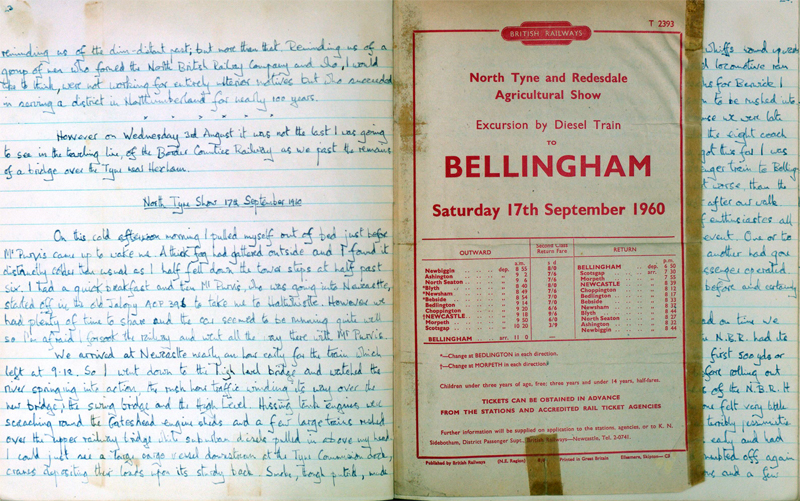 reminding us of the dim-distant past; but more than that. Reminding us of a
group of men who formed the North British Railway Company and who, I would
like to think, were not working for entirely ulterior motives but who succeeded
in serving a district in Northumberland for nearly 100 years.
However on Wednesday 3rd August it was not the last I was going
to see in the travelling line, of the Border Counties Railway as we past the remains
of a bridge over the Tyne near Hexham.
North Tyne Show 17th September 1960
On this cold afternoon morning I pulled myself out of bed just before
Mr Purvis came up to wake me. A thick fog had gathered outside and I found it
distinctly colder than usual as I half fell down the tower steps at half past
six. I had a quick breakfast and then Mr Purvis, who was going into Newcastle,
started off in the old Jalopy to take me to Haltwhistle. However we
had plenty of time to spare and the car seemed to be running quite well
so I'm afraid I forsook the railway and went all the way there with Mr Purvis.
We arrived at Newcastle nearly an hour early for the train which
left at 9.18. So I went down to the High Level bridge and watched the
river springing into action, the rush hour traffic winding its way over the
new bridge, the swing bridge and the High Level. Hissing tank engines were
screaching round the Gateshead engine sheds and a few large trains rushed
over the upper railway bridge while suburban diesels pulled in above my head.
I could just see a large cargo vessel downstream at the Tyne Commission dock,
cranes depositing their loads upon its sturdy back. Smoke,
T 2393
BRITISH RAILWAYS
North Tyne and Redesdale
Agricultural Show
Excursion by Diesel Train
TO
BELLINGHAM
Saturday 17th September 1960
OUTWARD Second Class Return Fare RETURN
a.m. s d p.m.
Newbiggin dep. 8 55 8/0 BELLINGHAM dep. 6 50
Ashington 9 2 7/6 Scotsgap arr. 7 30
North Seaton 9 6 7/6 Morpeth 7 55
*Blyth 8 40 8/0 NEWCASTLE 8 39
*Newsham 8 44 7/6 Choppington 8 12
*Bebside 8 54 7/0 Bedlington
Bedlington 9 14 7/0 Bebside
Choppington 9 20 6/6 Newsham
†NEWCASTLE 9 18 9/6 Blyth 8 44
Morpeth 9 50 6/0 North Seaton 8 27
Scotsgap 10 20 3/9 Ashington 8 32
Newbiggin 8 44
BELLINGHAM arr. 11 0 —
*—Change at BEDLINGTON in each direction.
†—Change at MORPETH in each direction.
Children under three years of age, free; three years and under 14 years, half-fares.
TICKETS CAN BE OBTAINED IN ADVANCE
FROM THE STATIONS AND ACCREDITED RAIL TICKET AGENCIES
Further information will be supplied on application to the stations, agencies, or to K. N.
Sidebotham, District Passenger Supt., Newcastle, Tel. 2-0741.
Published by British Railways (N.E. Region) Printed in Great Britain
Whiffs
locomotive
for Berwick I
to be rushed into
we were late
the eight coach
got this far I was
train to Belling
worse, then the
after our walk
enthusiasts all
event. One or to
another had gone
operated
before and certainly
on time we
N.B.R. had its
first 500 yds or
before rolling out
of the N.B.R. It
felt very little
early and had
off again
and a few